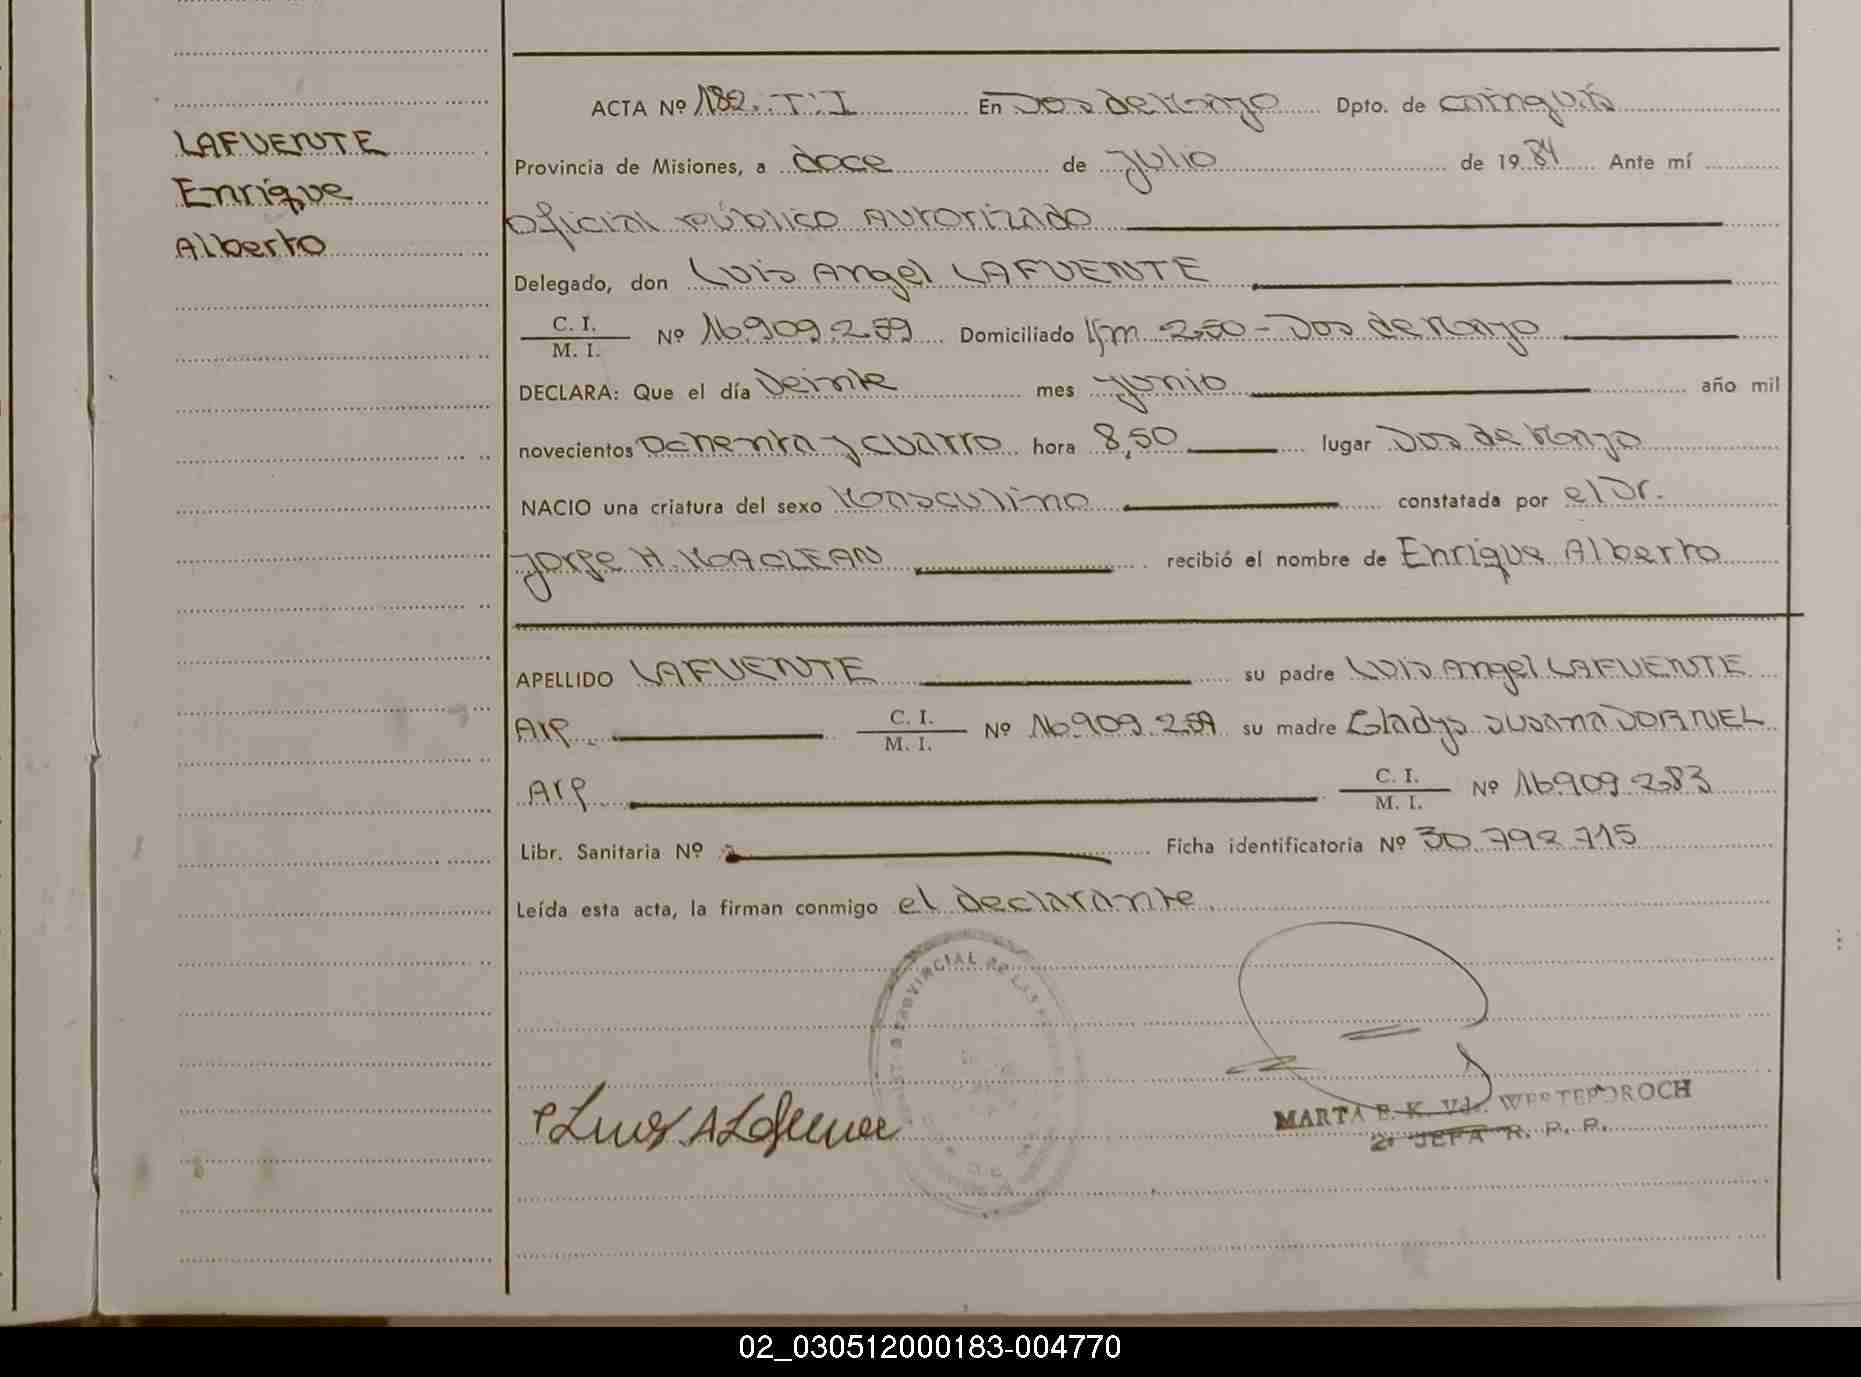 LAFUENTE
Enrique
Alberto
ACTA Nº 182. T: I En Dos de Mayo Dpto. de Cainguás
Provincia de Misiones, a doce de julio de 1984 Ante mí
Oficial Público Autorizado
Delegado, don Luis Angel LAFUENTE
C. I.
M. I. Nº 16.909.259 Domiciliado Km 250 - Dos de Mayo
DECLARA: Que el día Veinte mes junio año mil
novecientos ochenta y cuatro hora 8,50 lugar Dos de Mayo
NACIO una criatura del sexo Masculino constatada por el Dr.
Jorge H. MACLEAN recibió el nombre de Enrique Alberto
APELLIDO LAFUENTE su padre Luis Angel LAFUENTE
Arg. C. I.
M. I. Nº 16.909.259 su madre Gladys Susana DORNEL
Arg. C. I.
M. I. Nº 16.909.283
Libr. Sanitaria Nº Ficha identificatoria Nº 30.792.715
Leída esta acta, la firman conmigo el declarante.
PROVINCIAL DE LAS
MARTA E. K. Vda.
JEFA R. P. P.
02_030512000183-004770